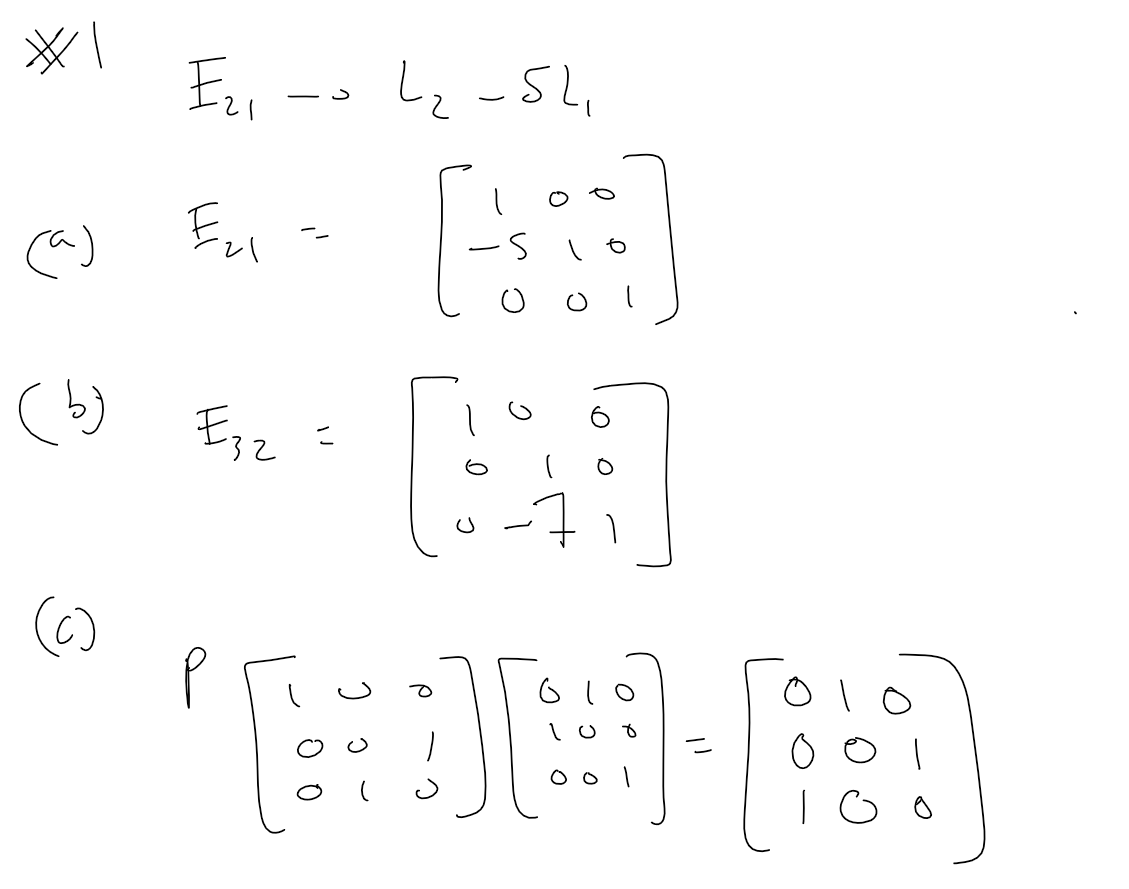 #1
E21 → L2 - 5L1
(a) E21 =
[ 1 0 0
-5 1 0
0 0 1 ]
(b) E32 =
[ 1 0 0
0 1 0
0 -7 1 ]
(c)
P [ 1 0 0 ] [ 0 1 0 ] = [ 0 1 0 ]
[ 0 0 1 ] [ 1 0 0 ] [ 0 0 1 ]
[ 0 1 0 ] [ 0 0 1 ] [ 1 0 0 ]